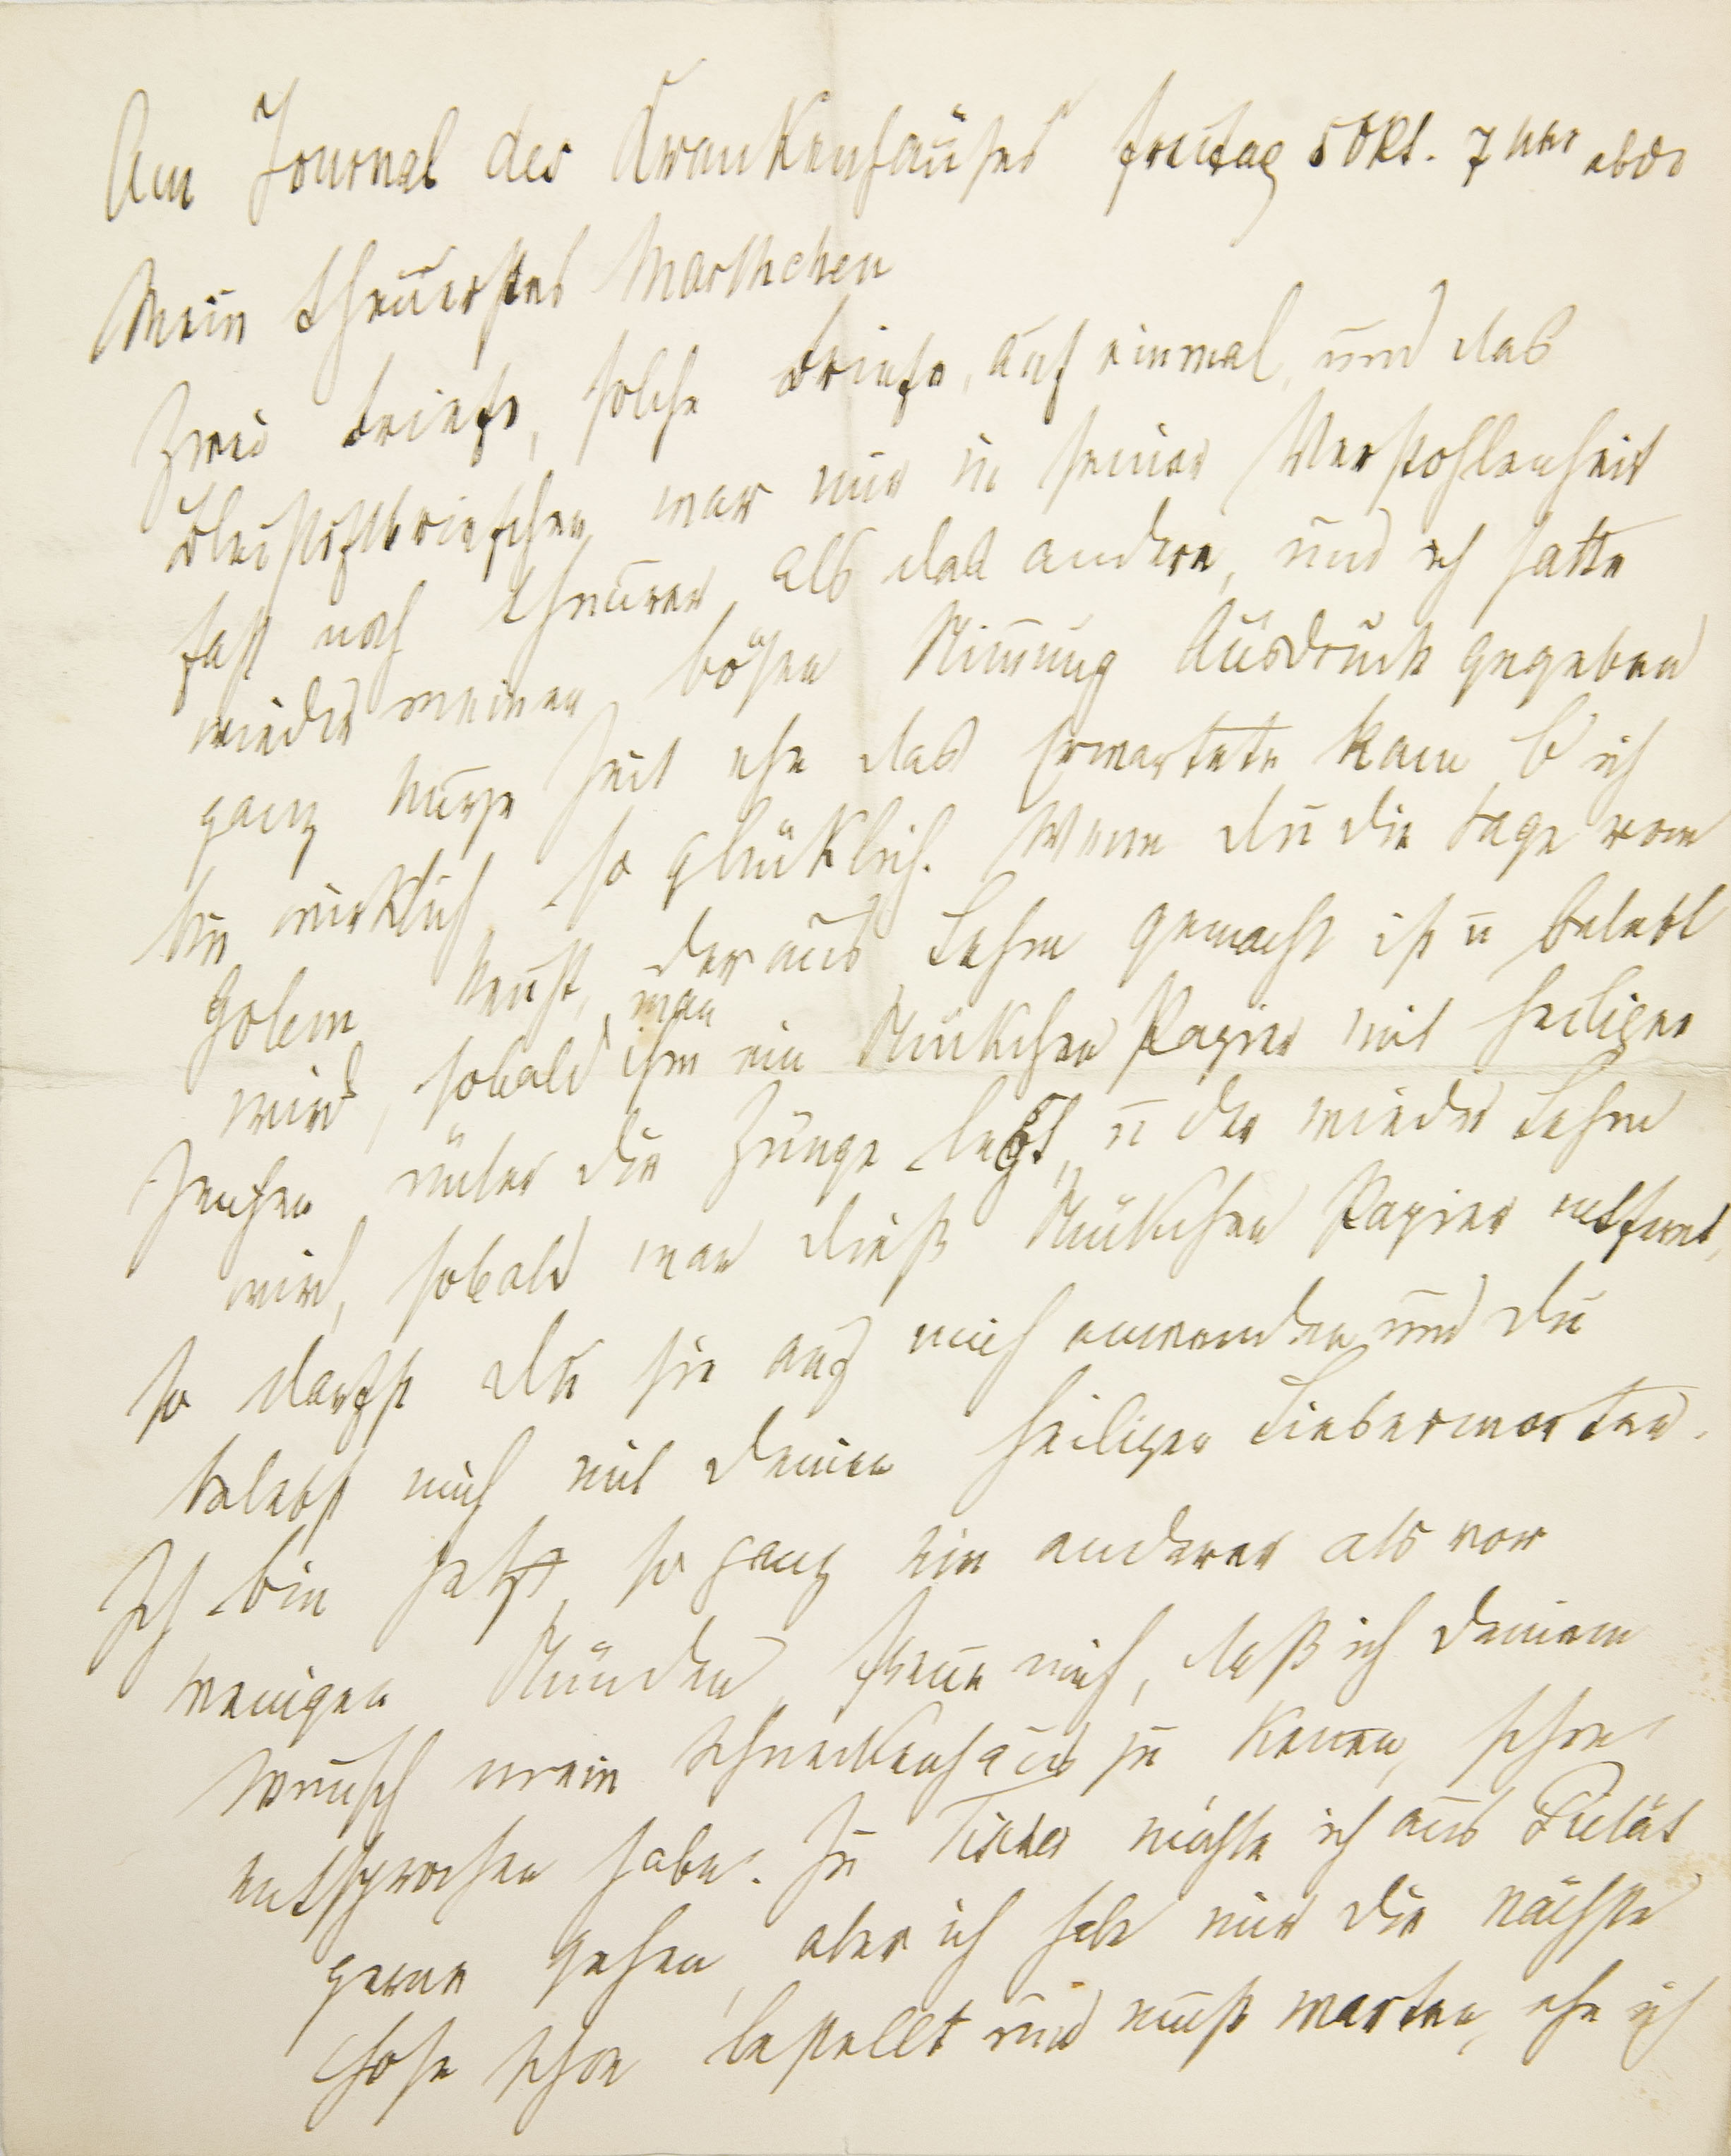 Am Journal des Krankenhauses Freitag 5 Okt. 7 Uhr abds
Mein theuerstes Marthchen
Zwei Briefe, solche Briefe, auf einmal, und das
Bleistiftbriefchen war mir in seiner Verstohlenheit
fast noch theurer als das andere, und ich hatte
wieder meiner bösen Stimmung Ausdruck gegeben
ganz kurze Zeit ehe das Erwartete kam & ich
bin wirklich so glücklich. Wenn du die Sage vom
Golem kennst, der aus Lehm gemacht ist u belebt
wird, sobald man ihm ein Stückchen Papier mit heiligen
Zeichen unter die Zunge legt, u der wieder Lehm
wird, sobald man dieß Stückchen Papier entfernt,
so darfst du sie auf mich anwenden und du
belebst mich mit deinen heiligen Liebesworten.
Ich bin jetzt so ganz ein anderer als vor
wenigen Stunden, freue mich, daß ich deinem
Wunsch mein Schneckenhaus zu kennen, schon
entsprochen habe. Zu Tischer möchte ich aus Pietät
gerne gehen, aber ich habe mir die nächste
Hose schon bestellt und muß warten, ehe ich